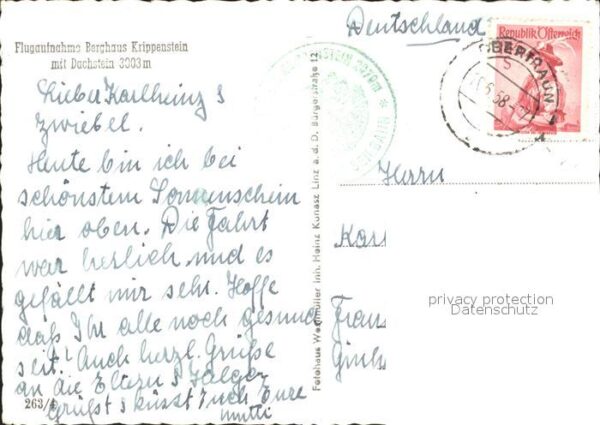 Flugaufnahme Berghaus Krippenstein
mit Dachstein 3003 m
Lieber Karlheinz &
Zwiebel.
Heute bin ich bei
schönstem Sonnenschein
hier oben. Die Fahrt
war herlich und es
gefällt mir sehr. Hoffe
daß Ihr alle noch gesund
seit. Auch herzl. Grüße
an die Eltern &
Grüßt & küsst Euch Eure
Mutti
263/4
Fotohaus Westmüller Inh. Heinz Kunasz Linz a. d. D. Bürgerstraße 12
Deutschland
Republik Österreich
OBERTRAUN
Herrn
Kar
privacy protection
Datenschutz